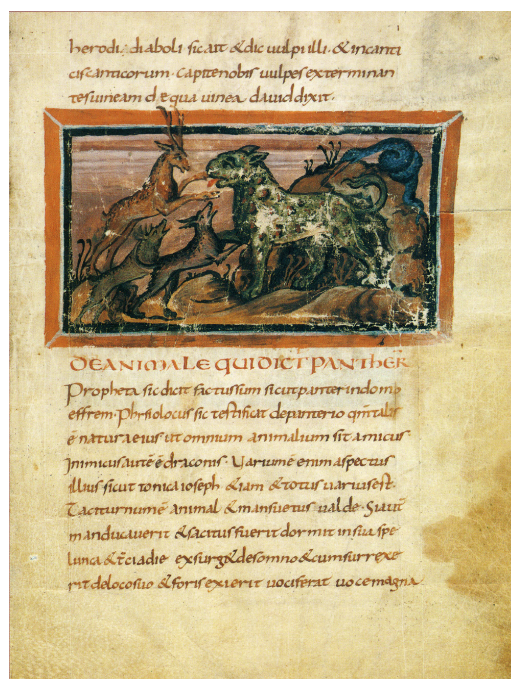 herodi. diaboli sicait & dic uulpi illi. & incanti
ciscanticorum. Capitenobis uulpes exterminan
tes uineam de qua uinea dauid dixit.
DE ANIMALE QUI DICT PANTHER
Propheta sic dicit factus sum sicut panter in domo
effrem. Phisiolocus sic testificat de panterio qm talis
ē natura eius ut omnium animalium sit amicus.
Inimicus autē ē draconis. Uarium ē enim aspectus
illius sicut tonica ioseph & iam & totus uarius est.
Taciturnum ē animal & mansuetus ualde. Si aut
manducauerit & sacitus fuerit dormit in sua spe
lunca & t̄cia die exsurg& de somno & cum surrexe
rit de loco suo & foris exierit uociferat uoce magna